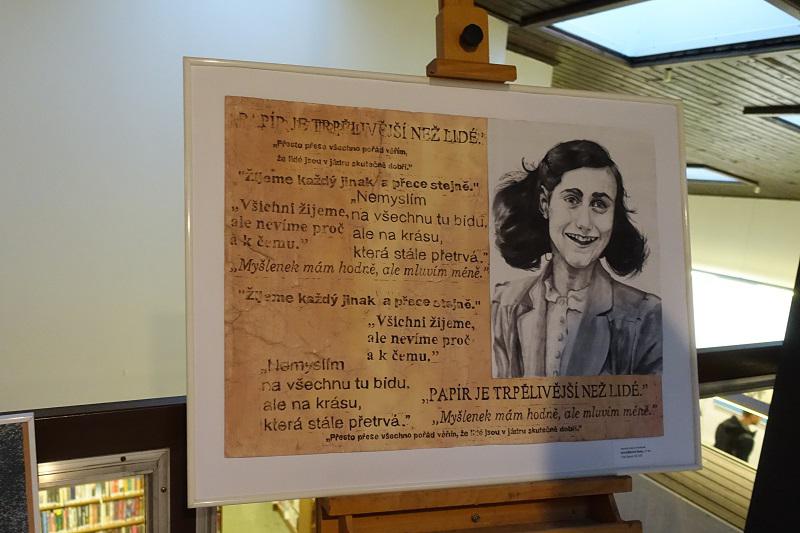 „PAPÍR JE TRPĚLIVĚJŠÍ NEŽ LIDÉ.”
„Přesto přese všechno pořád věřím,
že lidé jsou v jádru skutečně dobří.”
"Žijeme každý jinak a přece stejně."
„Všichni žijeme,
ale nevíme proč
a k čemu.”
„Nemyslím
na všechnu tu bídu,
ale na krásu,
která stále přetrvá.”
„Myšlenek mám hodně, ale mluvím méně.”
"Žijeme každý jinak a přece stejně."
„Všichni žijeme,
ale nevíme proč
a k čemu.”
„Nemyslím
na všechnu tu bídu,
ale na krásu,
která stále přetrvá.”
„PAPÍR JE TRPĚLIVĚJŠÍ NEŽ LIDÉ.”
„Myšlenek mám hodně, ale mluvím méně.”
„Přesto přese všechno pořád věřím, že lidé jsou v jádru skutečně dobří.”